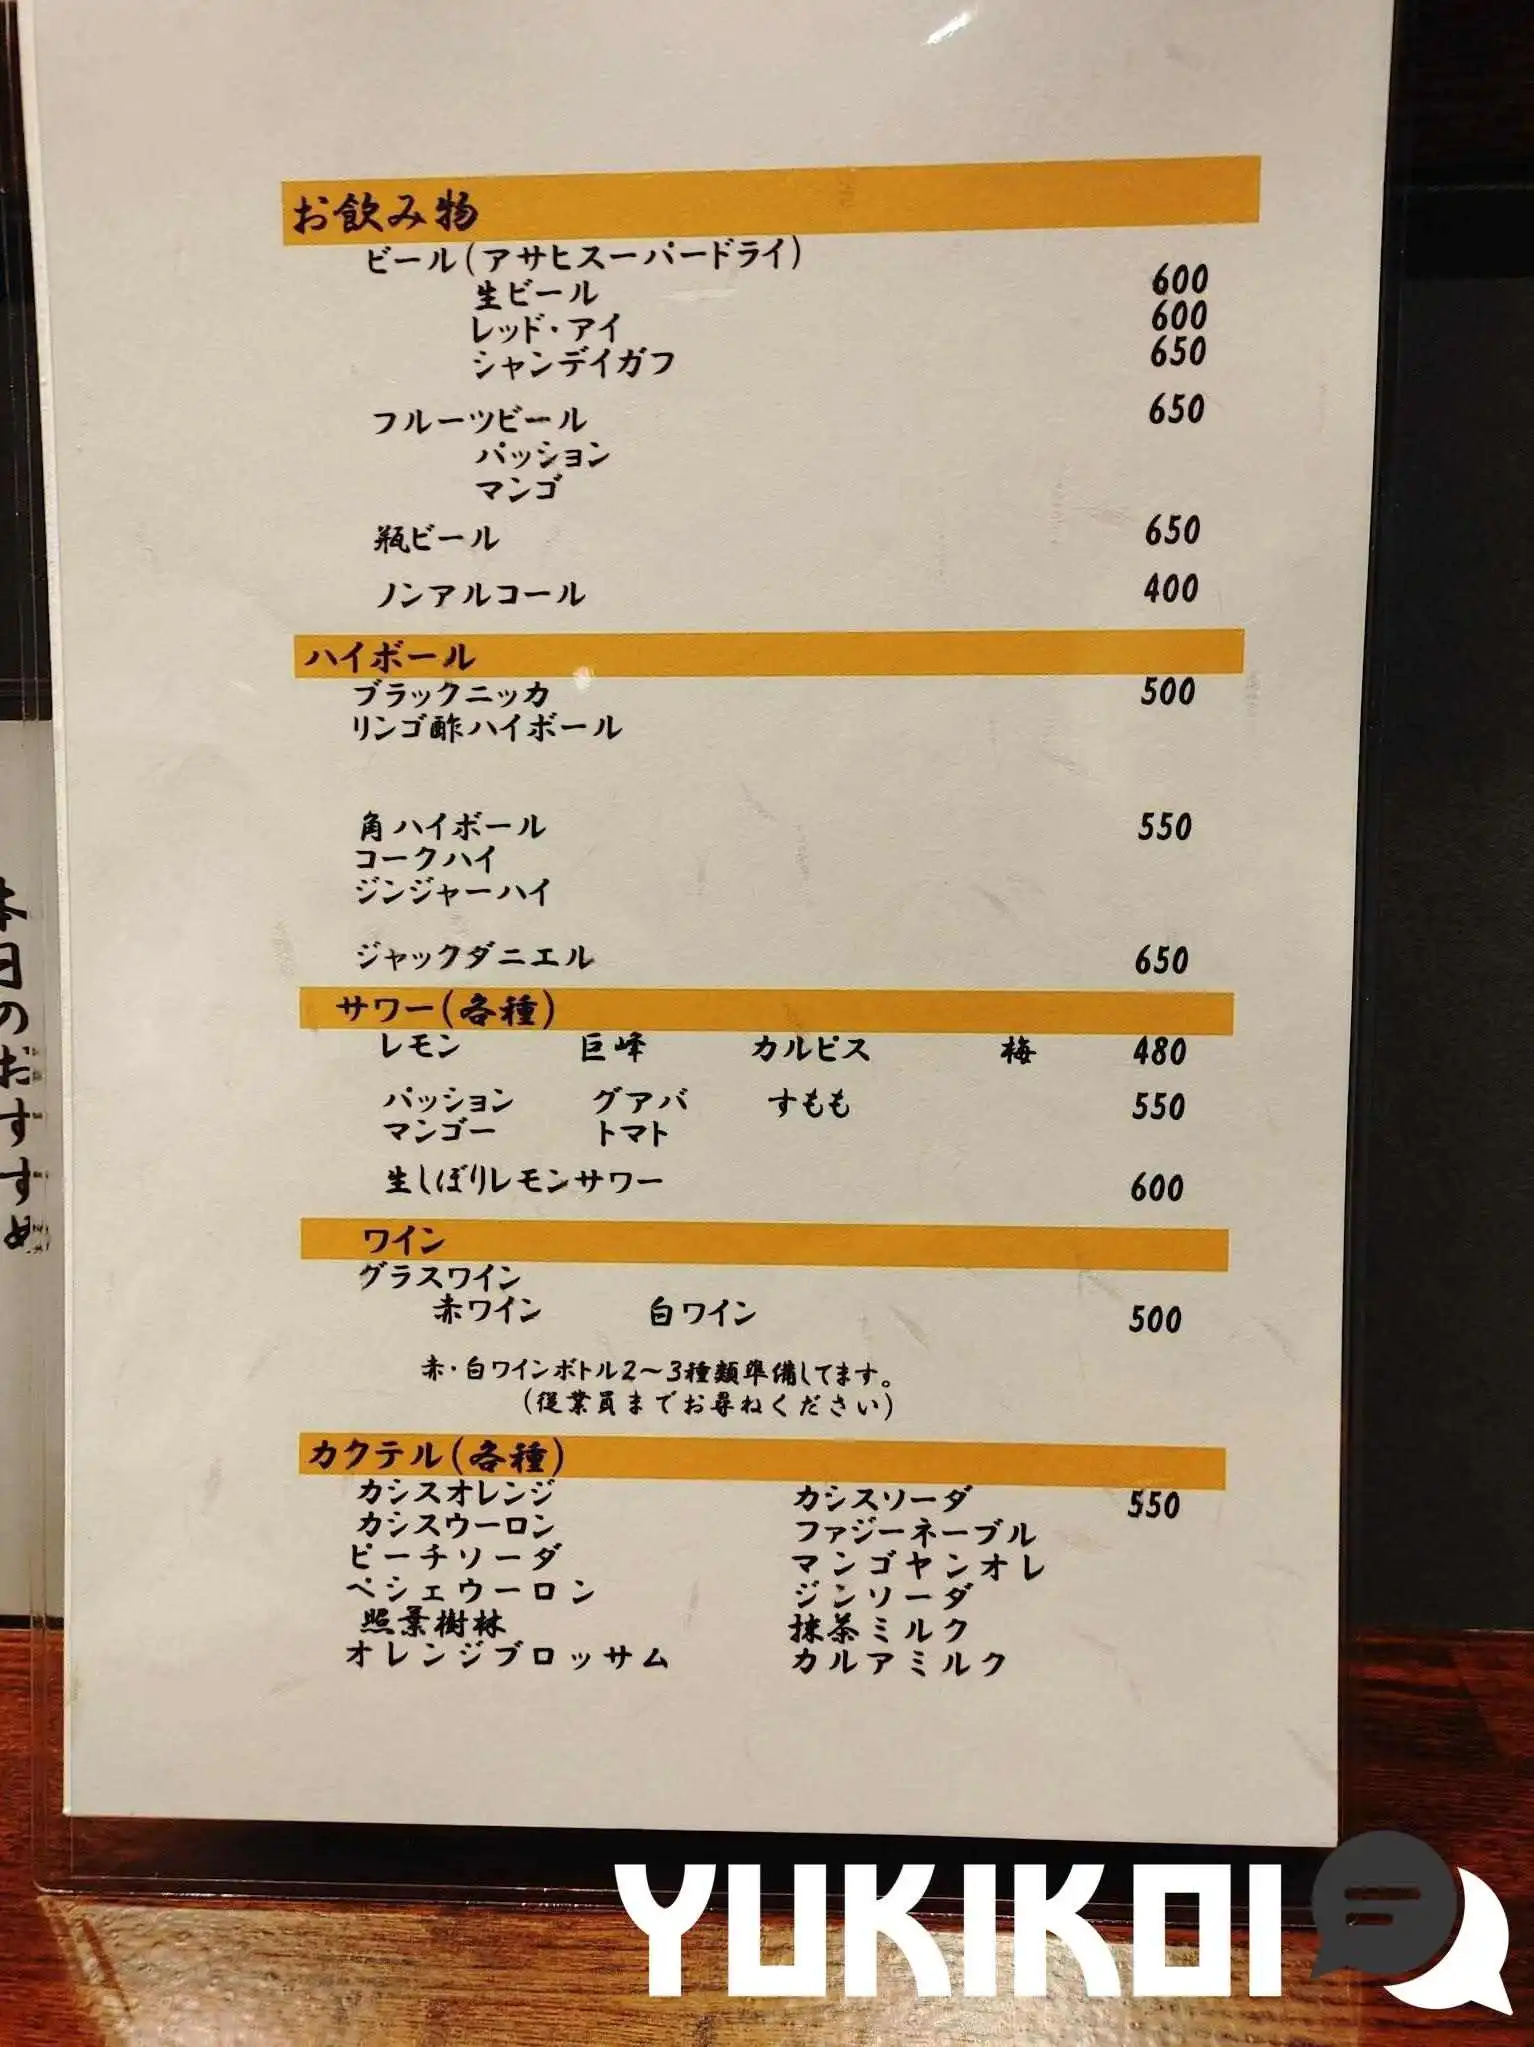 お飲み物
ビール(アサヒスーパードライ)
生ビール 600
レッド・アイ 600
シャンデイガフ 650
フルーツビール 650
パッション
マンゴ
瓶ビール 650
ノンアルコール 400
ハイボール
ブラックニッカ 500
リンゴ酢ハイボール
角ハイボール 550
コークハイ
ジンジャーハイ
ジャックダニエル 650
サワー(各種)
レモン 巨峰 カルピス 梅 480
パッション グアバ すもも 550
マンゴー トマト
生しぼりレモンサワー 600
ワイン
グラスワイン
赤ワイン 白ワイン 500
赤・白ワインボトル2〜3種類準備してます。
(従業員までお尋ねください)
カクテル(各種)
カシスオレンジ カシスソーダ 550
カシスウーロン ファジーネーブル
ピーチソーダ マンゴヤンオレ
ペシェウーロン ジンソーダ
照葉樹林 抹茶ミルク
オレンジブロッサム カルアミルク
本日のおすすめ
YUKIKOI